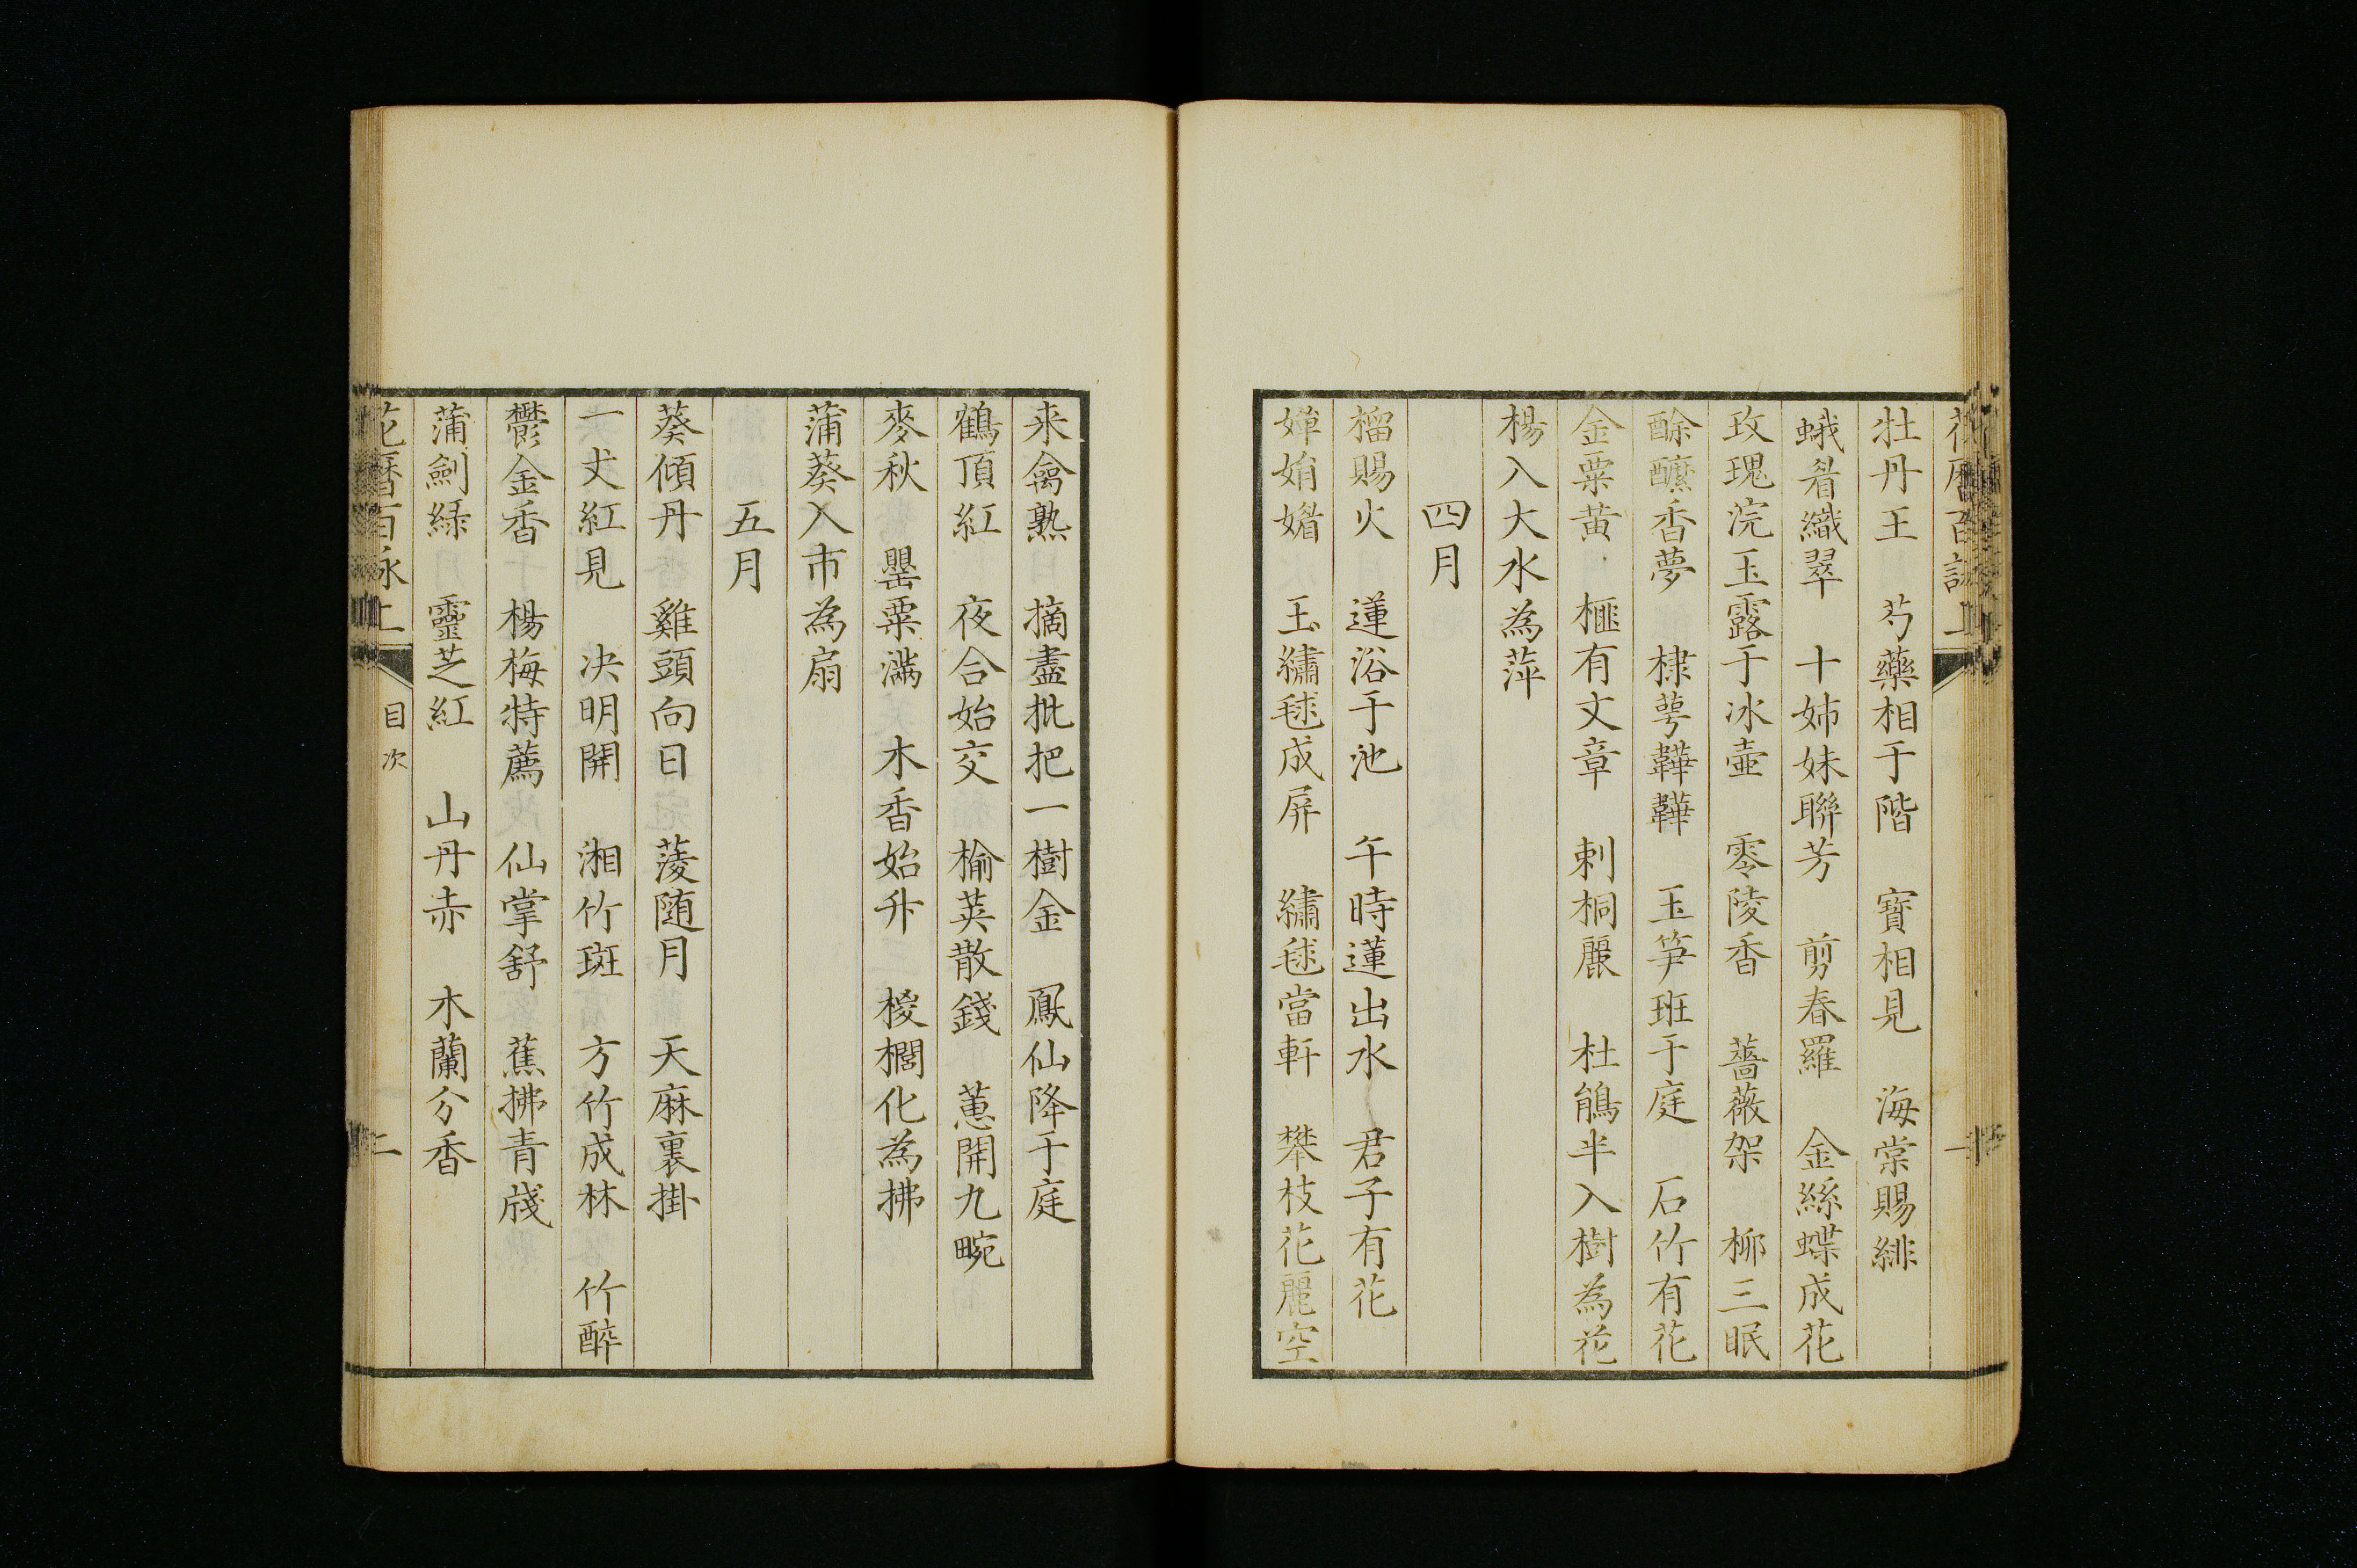 牡丹王　芍藥相于階　寶相見　海棠賜緋
蛾眉織翠　十姉妹聯芳　剪春羅　金絲蝶成花
玫瑰浣玉露于冰壷　零陵香　薔薇架　柳三眠
酴醿香夢　棣萼韡韡　玉笋班于庭　石竹有花
金粟黄　榧有文章　刺桐麗　杜鵑半入樹為花
楊入大水為萍
四月
榴賜火　蓮浴于池　午時蓮出水　君子有花
嬋娟媚　玉繡毬成屏　繡毬當軒　攀枝花麗空
来禽熟　摘盡枇把一樹金　鳳仙降于庭
鶴頂紅　夜合始交　榆莢散錢　蕙開九畹
麥秋　罌粟滿　木香始升　椶櫚化為拂
蒲葵入市為扇
五月
葵傾丹　雞頭向日　蓤随月　天麻裏掛
一丈紅見　决明開　湘竹斑　方竹成林　竹醉
鬱金香　楊梅特薦　仙掌舒　蕉拂青牋
蒲劍緑　靈芝紅　山丹赤　木蘭分香
花曆百詠上　目次　二